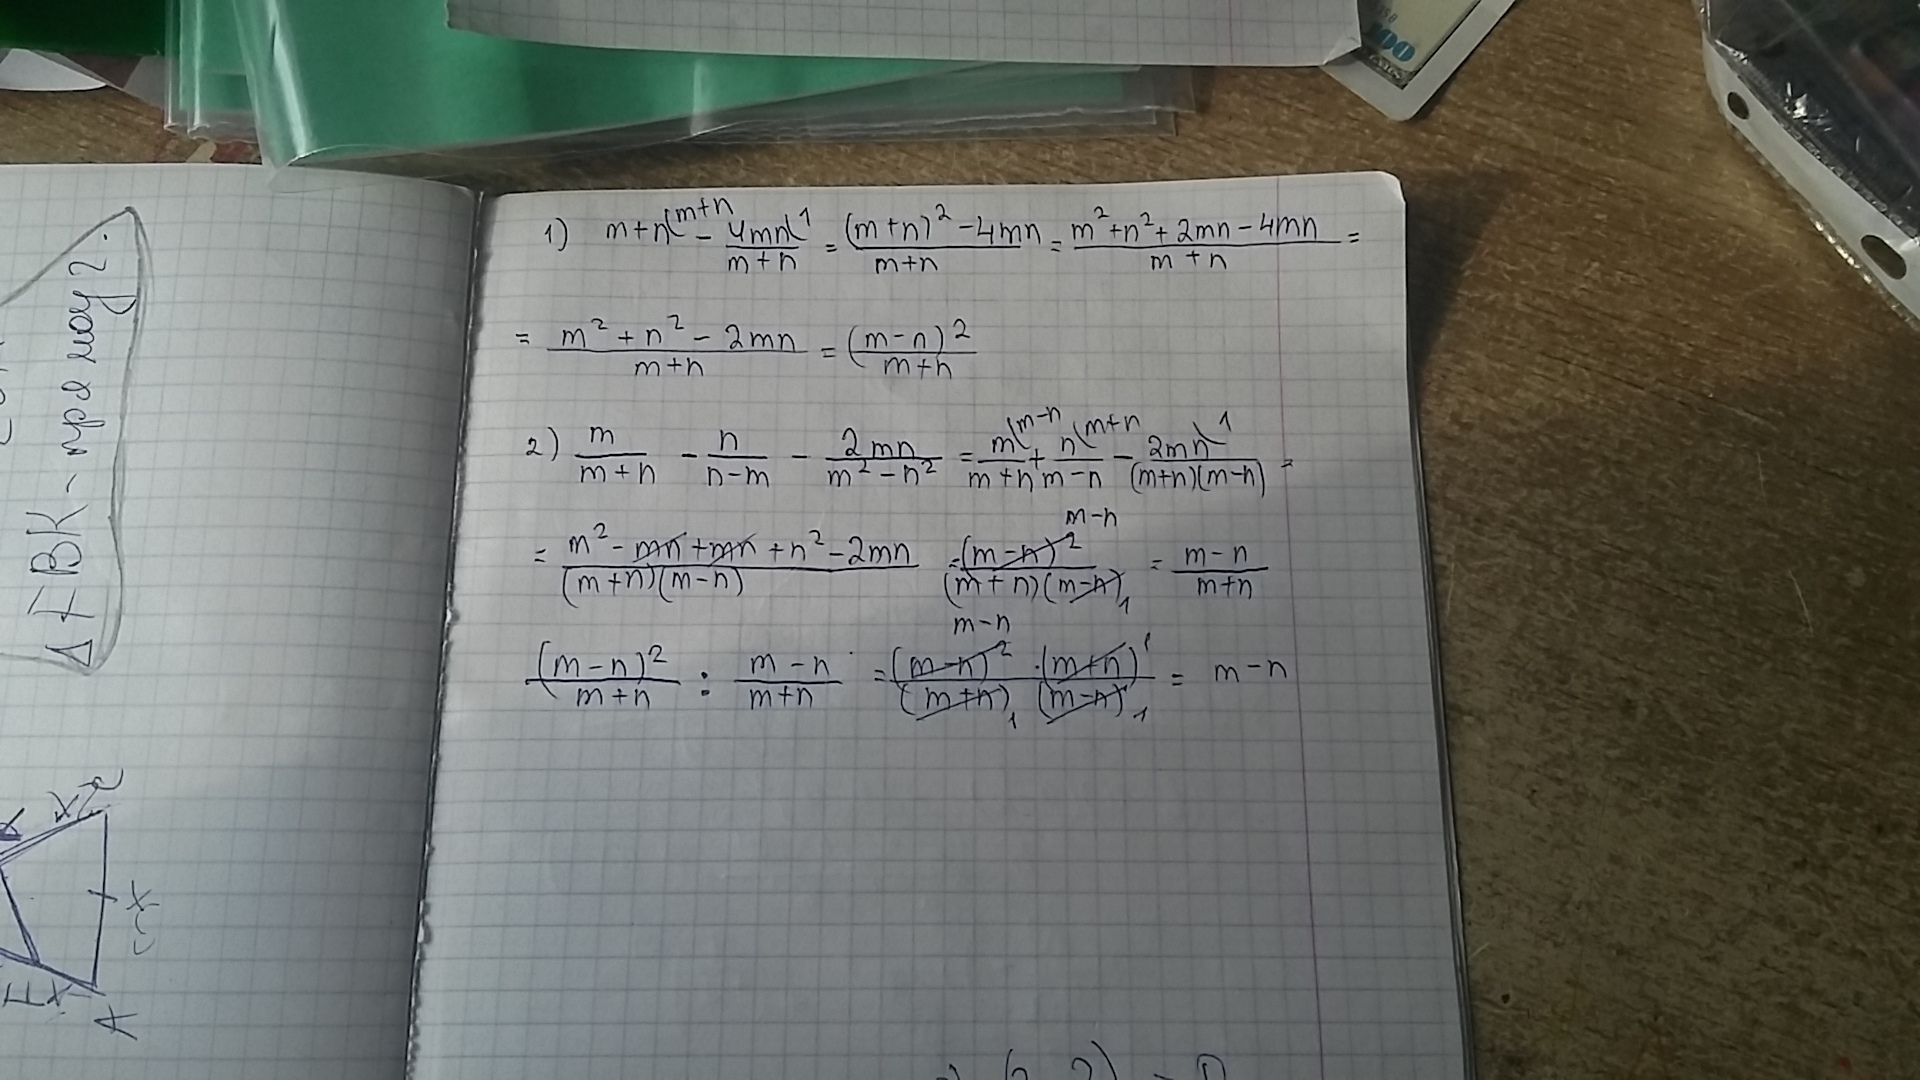 1) m+n\m+n - 4mn\1/m+n = (m+n)²-4mn/m+n = m²+n²+2mn-4mn/m+n =
= m²+n²-2mn/m+n = (m-n)²/m+n
2) m/m+n - n/n-m - 2mn/m²-n² = m\m-n/m+n + n\m+n/m-n - 2mn\1/(m+n)(m-n) =
= m²-mn+mn+n²-2mn/(m+n)(m-n) = (m-n)² m-n/(m+n)(m-n) 1 = m-n/m+n
(m-n)²/m+n : m-n/m+n = (m-n)² m-n · (m+n) 1/(m+n) 1 (m-n) 1 = m-n
Δ FBK -
x
A